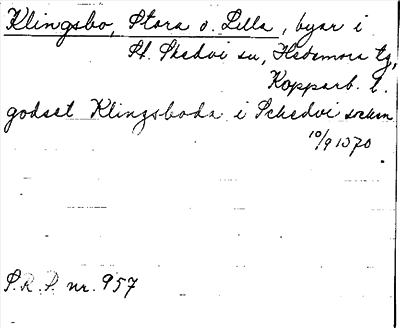 Klingsbo, Stora o. Lilla, byar i
St. Skedvi sn, Hedemora tg,
Kopparb. l.
godset Klingsboda i Schedvi sochen
10/9 1370
S.R.P. nr. 957